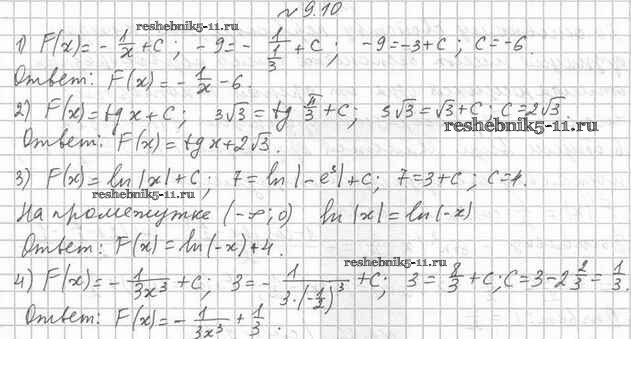 № 9.10
reshebnik5-11.ru
1) F(x) = - 1/x + C ; - 9 = - 1/(1/3) + C ; - 9 = - 3 + C ; C = - 6 .
Ответ: F(x) = - 1/x - 6 .
2) F(x) = tg x + C ; 3√3 = tg π/3 + C ; 3√3 = √3 + C ; C = 2√3 .
reshebnik5-11.ru
Ответ: F(x) = tg x + 2√3 .
3) F(x) = ln |x| + C ; 7 = ln |-e³| + C ; 7 = 3 + C ; C = 4 .
reshebnik5-11.ru
На промежутке (-∞; 0) ln |x| = ln (-x)
Ответ: F(x) = ln (-x) + 4 .
reshebnik5-11.ru
4) F(x) = - 1/3x³ + C ; 3 = - 1/(3·(-1/2)³) + C ; 3 = 8/3 + C ; C = 3 - 2 2/3 = 1/3 .
Ответ: F(x) = - 1/3x³ + 1/3 .